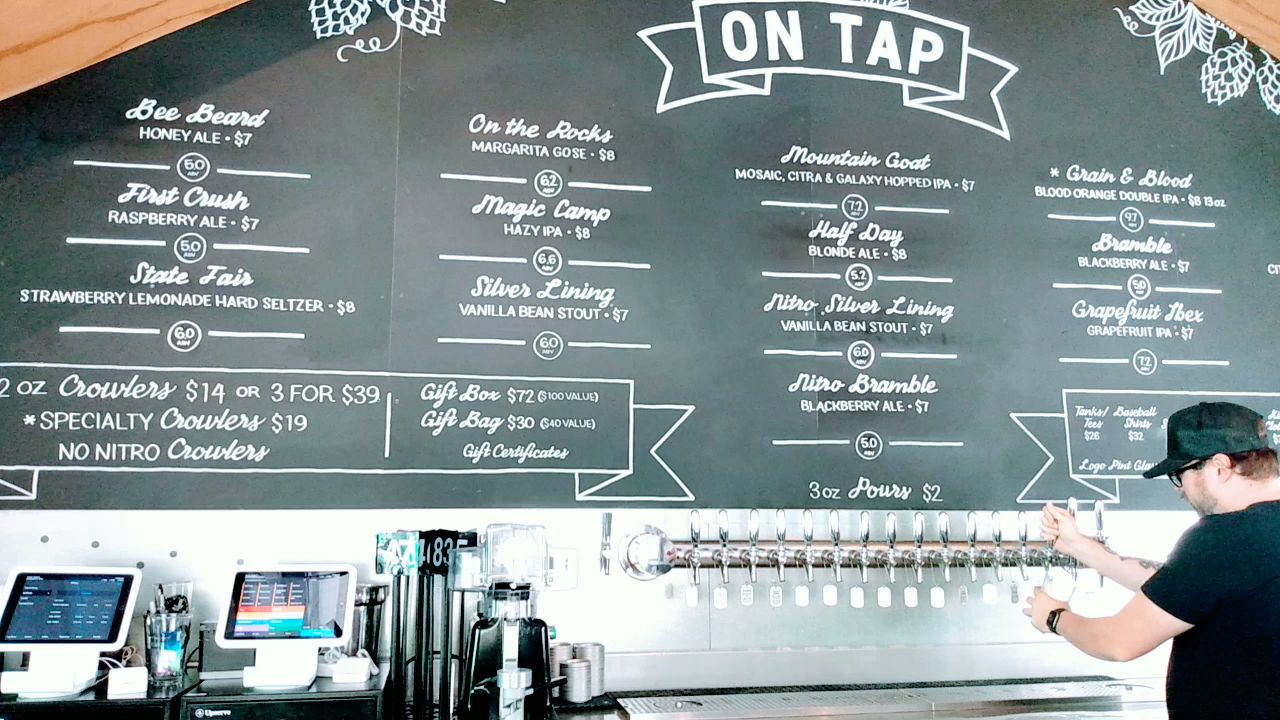 ON TAP
Bee Beard
HONEY ALE • $7
5.0 ABV
First Crush
RASPBERRY ALE • $7
5.0 ABV
State Fair
STRAWBERRY LEMONADE HARD SELTZER • $8
6.0 ABV
On the Rocks
MARGARITA GOSE • $8
6.2 ABV
Magic Camp
HAZY IPA • $8
6.6 ABV
Silver Lining
VANILLA BEAN STOUT • $7
6.0 ABV
Mountain Goat
MOSAIC, CITRA & GALAXY HOPPED IPA • $7
7.2 ABV
Half Day
BLONDE ALE • $8
5.2 ABV
Nitro Silver Lining
VANILLA BEAN STOUT • $7
6.0 ABV
Nitro Bramble
BLACKBERRY ALE • $7
5.0 ABV
3oz Pours $2
* Grain & Blood
BLOOD ORANGE DOUBLE IPA • $8 13oz
9.7 ABV
Bramble
BLACKBERRY ALE • $7
5.0 ABV
Grapefruit Ibex
GRAPEFRUIT IPA • $7
7.2 ABV
2 OZ Crowlers $14 OR 3 FOR $39
* SPECIALTY Crowlers $19
NO NITRO Crowlers
Gift Box $72 ($100 VALUE)
Gift Bag $30 ($40 VALUE)
Gift Certificates
Tanks/ Tees $26
Baseball Shirts $32
Logo Pint
Upserve